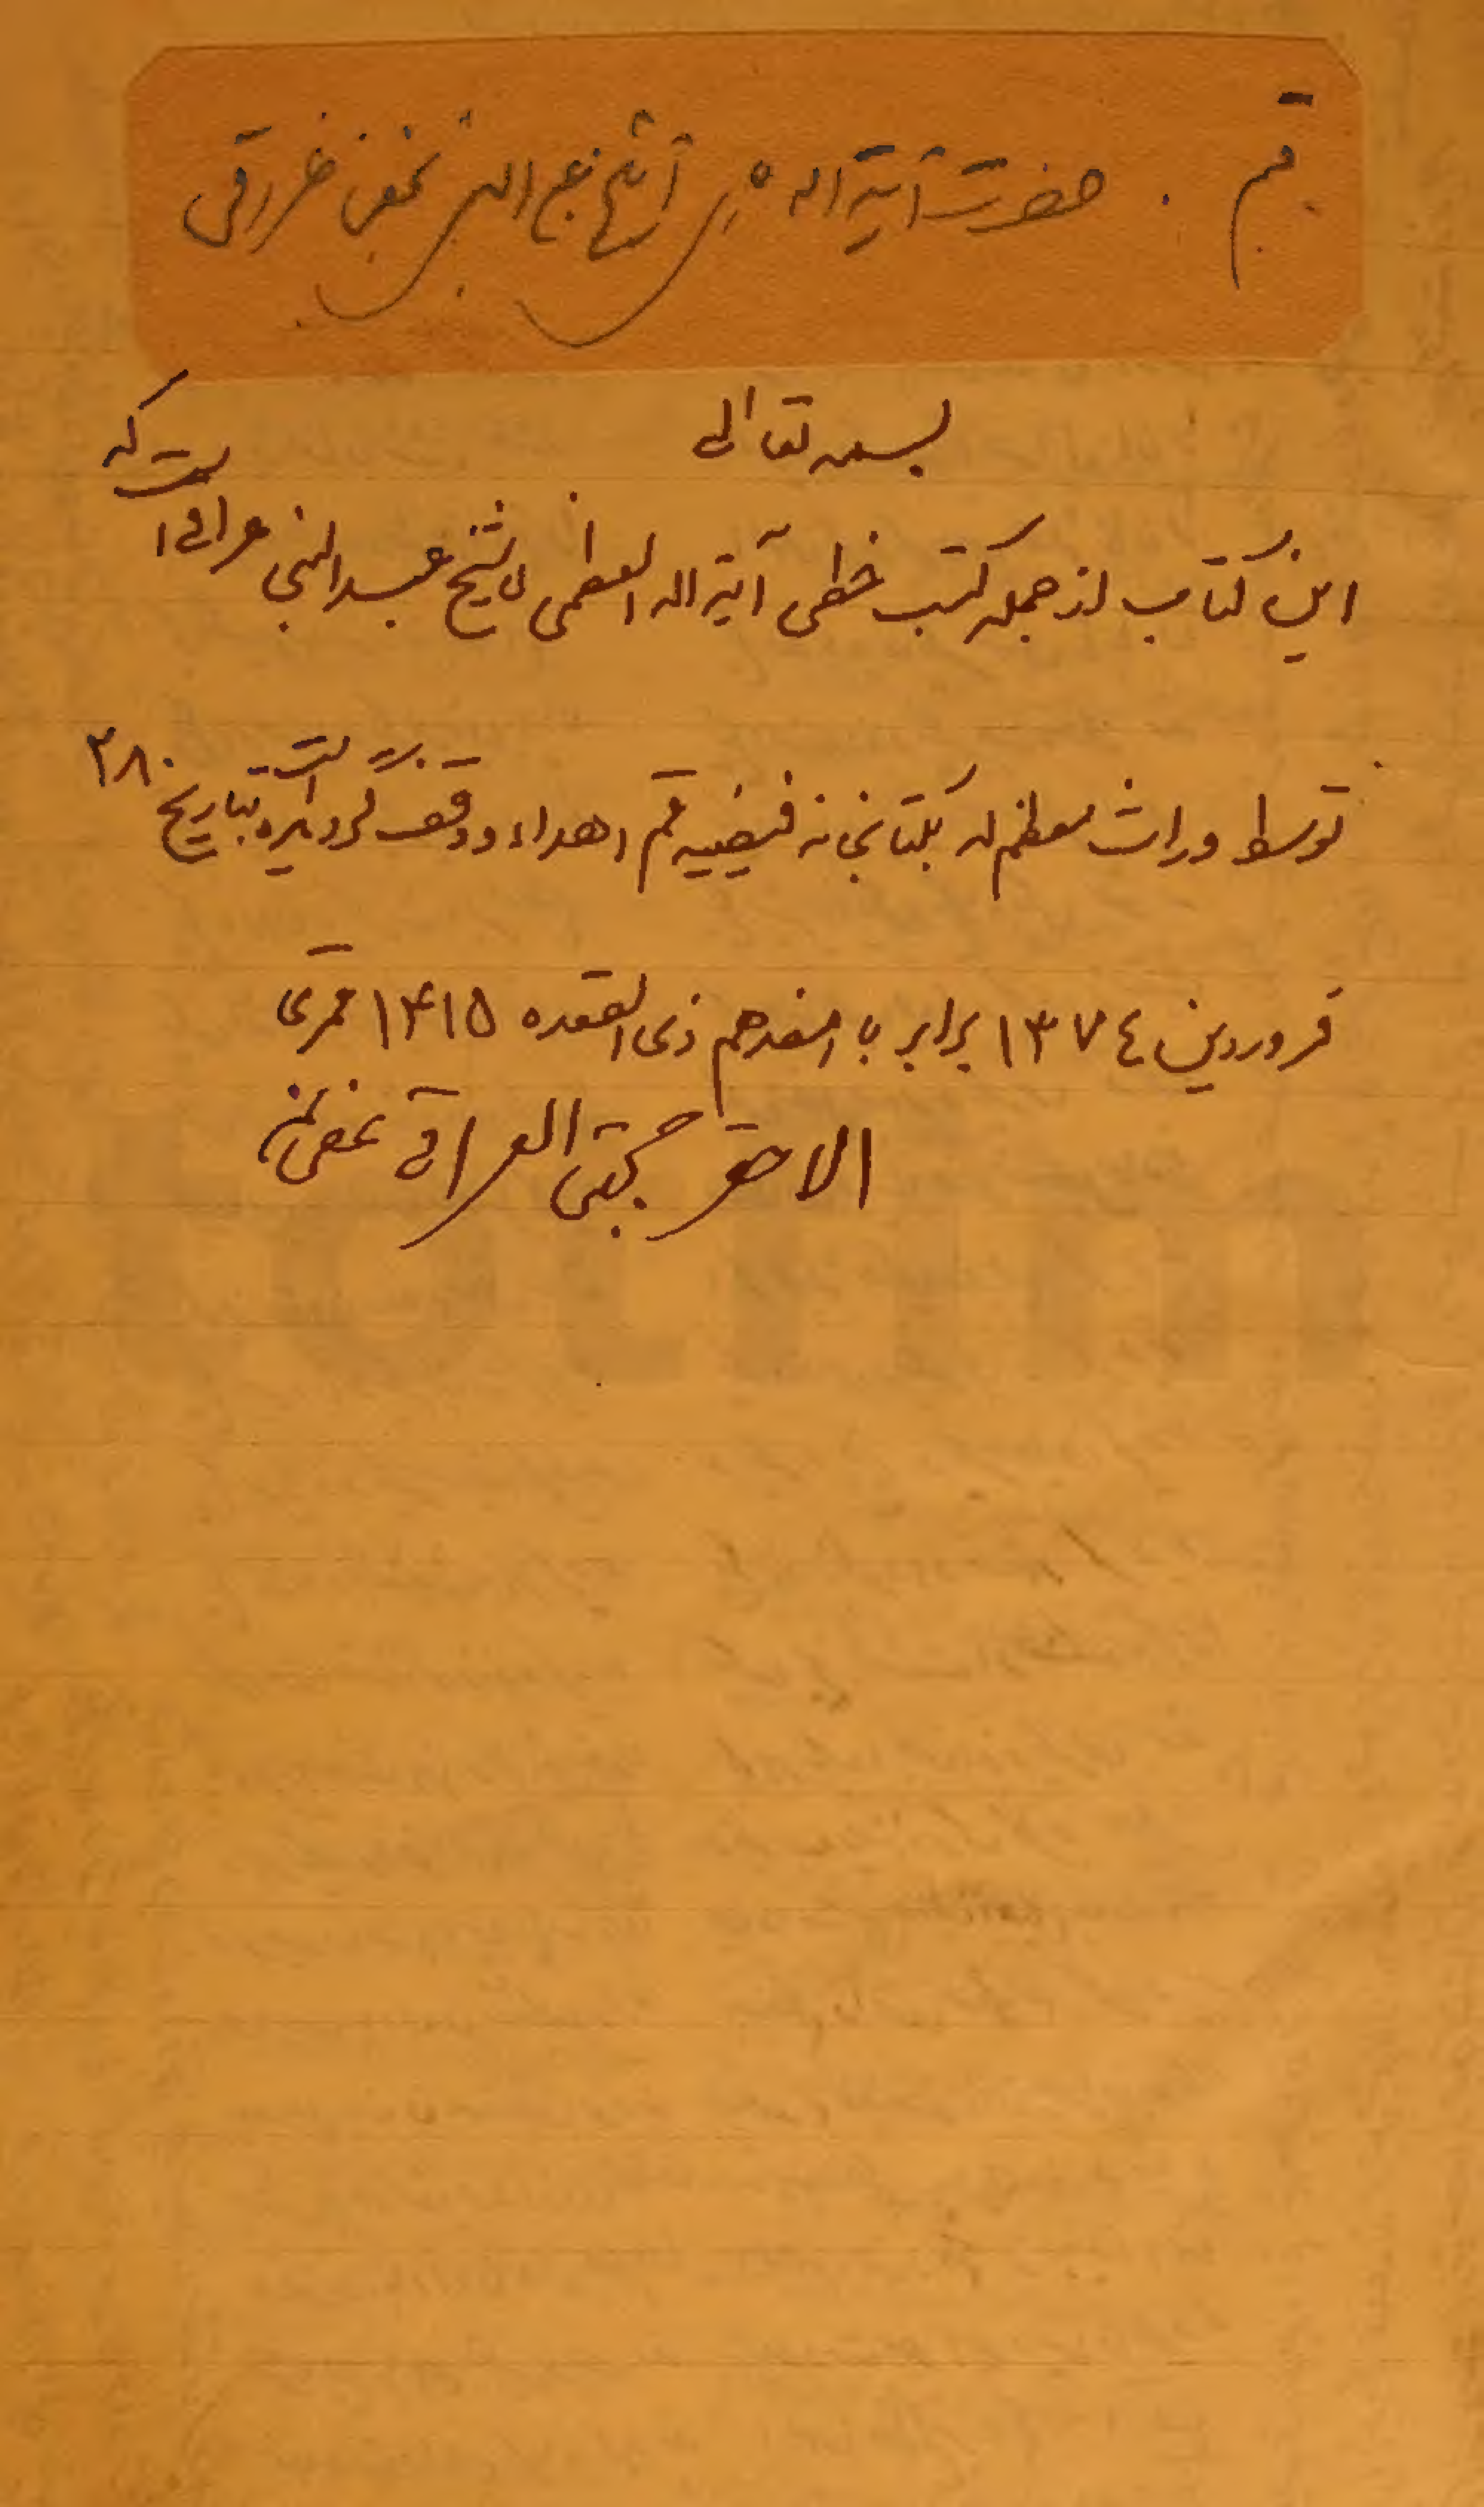 قم . حضرت آیة اله آشیخ عبدالنبی نجفی عراقی
بسمه تعالی
این کتاب از جمله کتب خطی آیة اله العظمی شیخ عبدالنبی عراقی است که
توسط وراث معظم له بکتابخانه فیضیه قم اهداء و وقف گردیده است بتاریخ ۲۸
فروردین ۱۳۷٤ برابر با ذی القعده ۱۴۱۵ قمری
الاحقر مجتبی العراقی عفی عنه